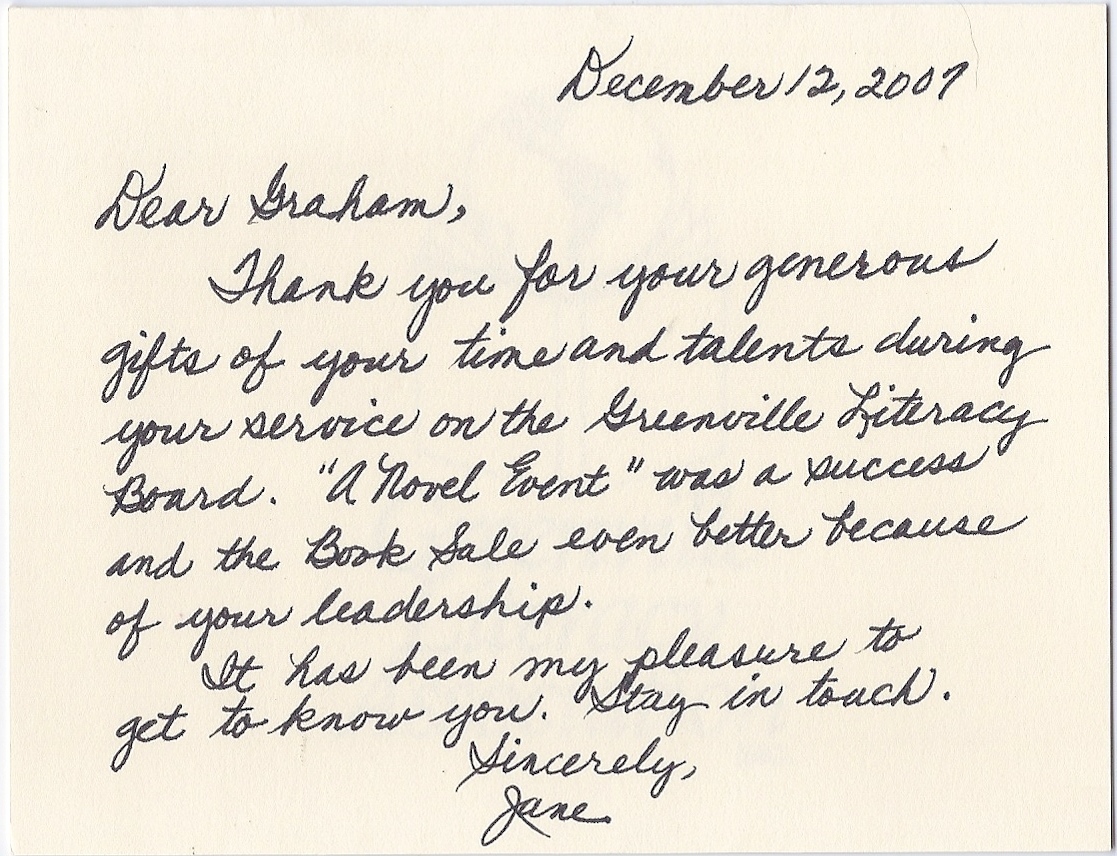 December 12, 2007
Dear Graham,
Thank you for your generous
gifts of your time and talents during
your service on the Greenville Literacy
Board. "A Novel Event" was a success
and the Book Sale even better because
of your leadership.
It has been my pleasure to
get to know you. Stay in touch.
Sincerely,
Jane